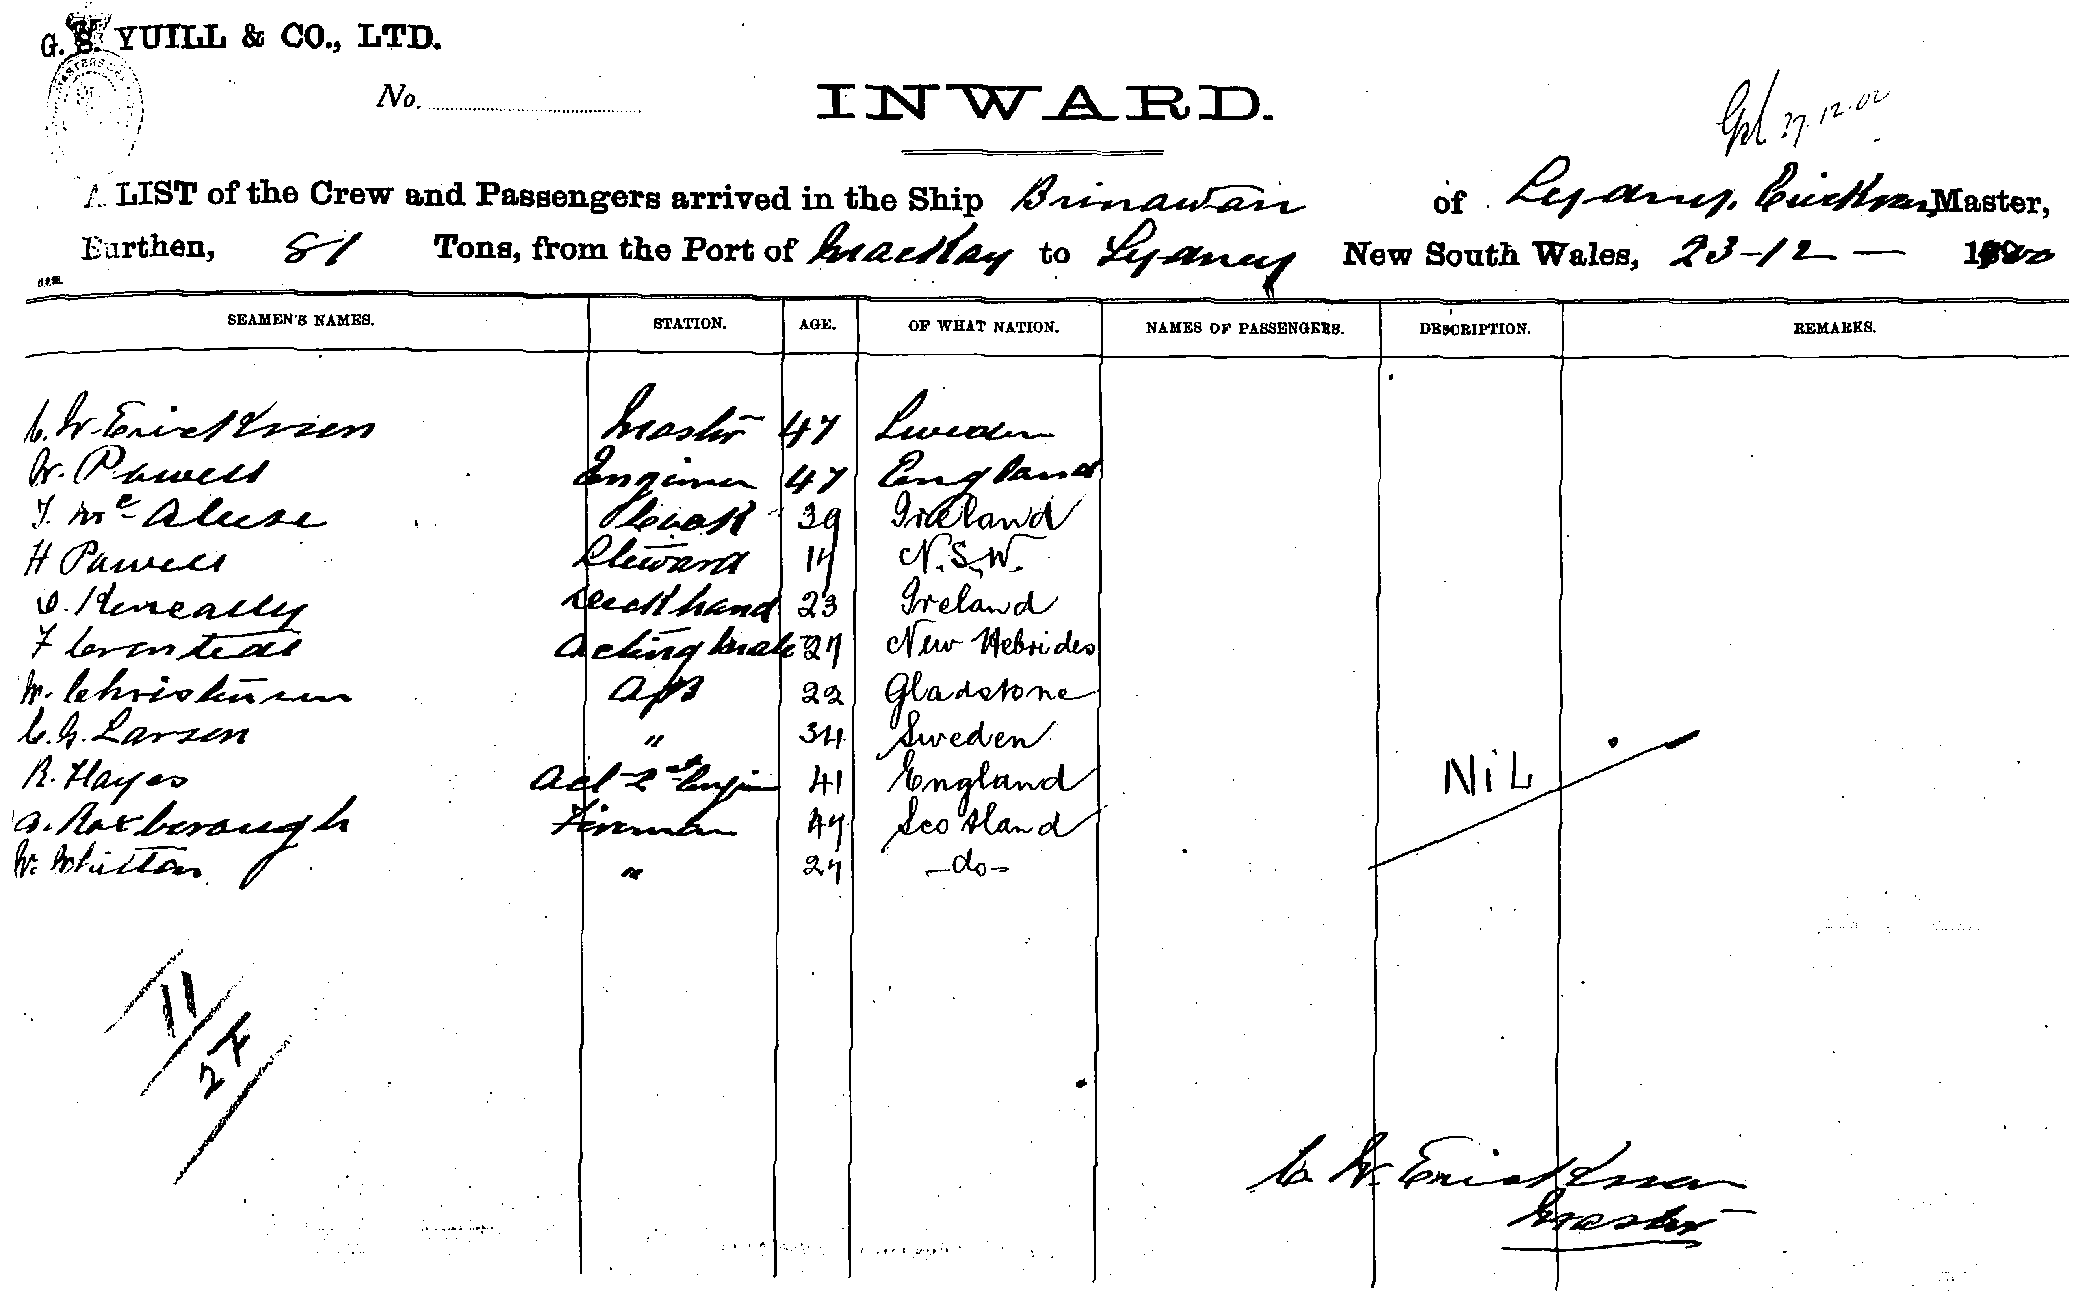 G. S. YUILL & CO., LTD.
No.
INWARD.
27.12.02
A LIST of the Crew and Passengers arrived in the Ship Brinawarr of Sydney, Erickson, Master,
Burthen, 81 Tons, from the Port of Mackay to Sydney New South Wales, 23-12-
SEAMEN'S NAMES. STATION. AGE. OF WHAT NATION. NAMES OF PASSENGERS. DESCRIPTION. REMARKS.
C. W. Erickson Master 47 Sweden
W. Powell Engineer 47 England
Mc Cook 39 Ireland
H Powell Steward 14 N.S.W.
Keneally Deckhand 23 Ireland
F Acting Mate 27 New Hebrides
W. Christensen A/B 22 Gladstone
C. G. Larsen " 34 Sweden
R. Hayes Act 2nd Engin 41 England
NiL
A. Roxborough Fireman 47 Scotland
W. Whitton " 27 -do-
11
27
C. W. Erickson
Master